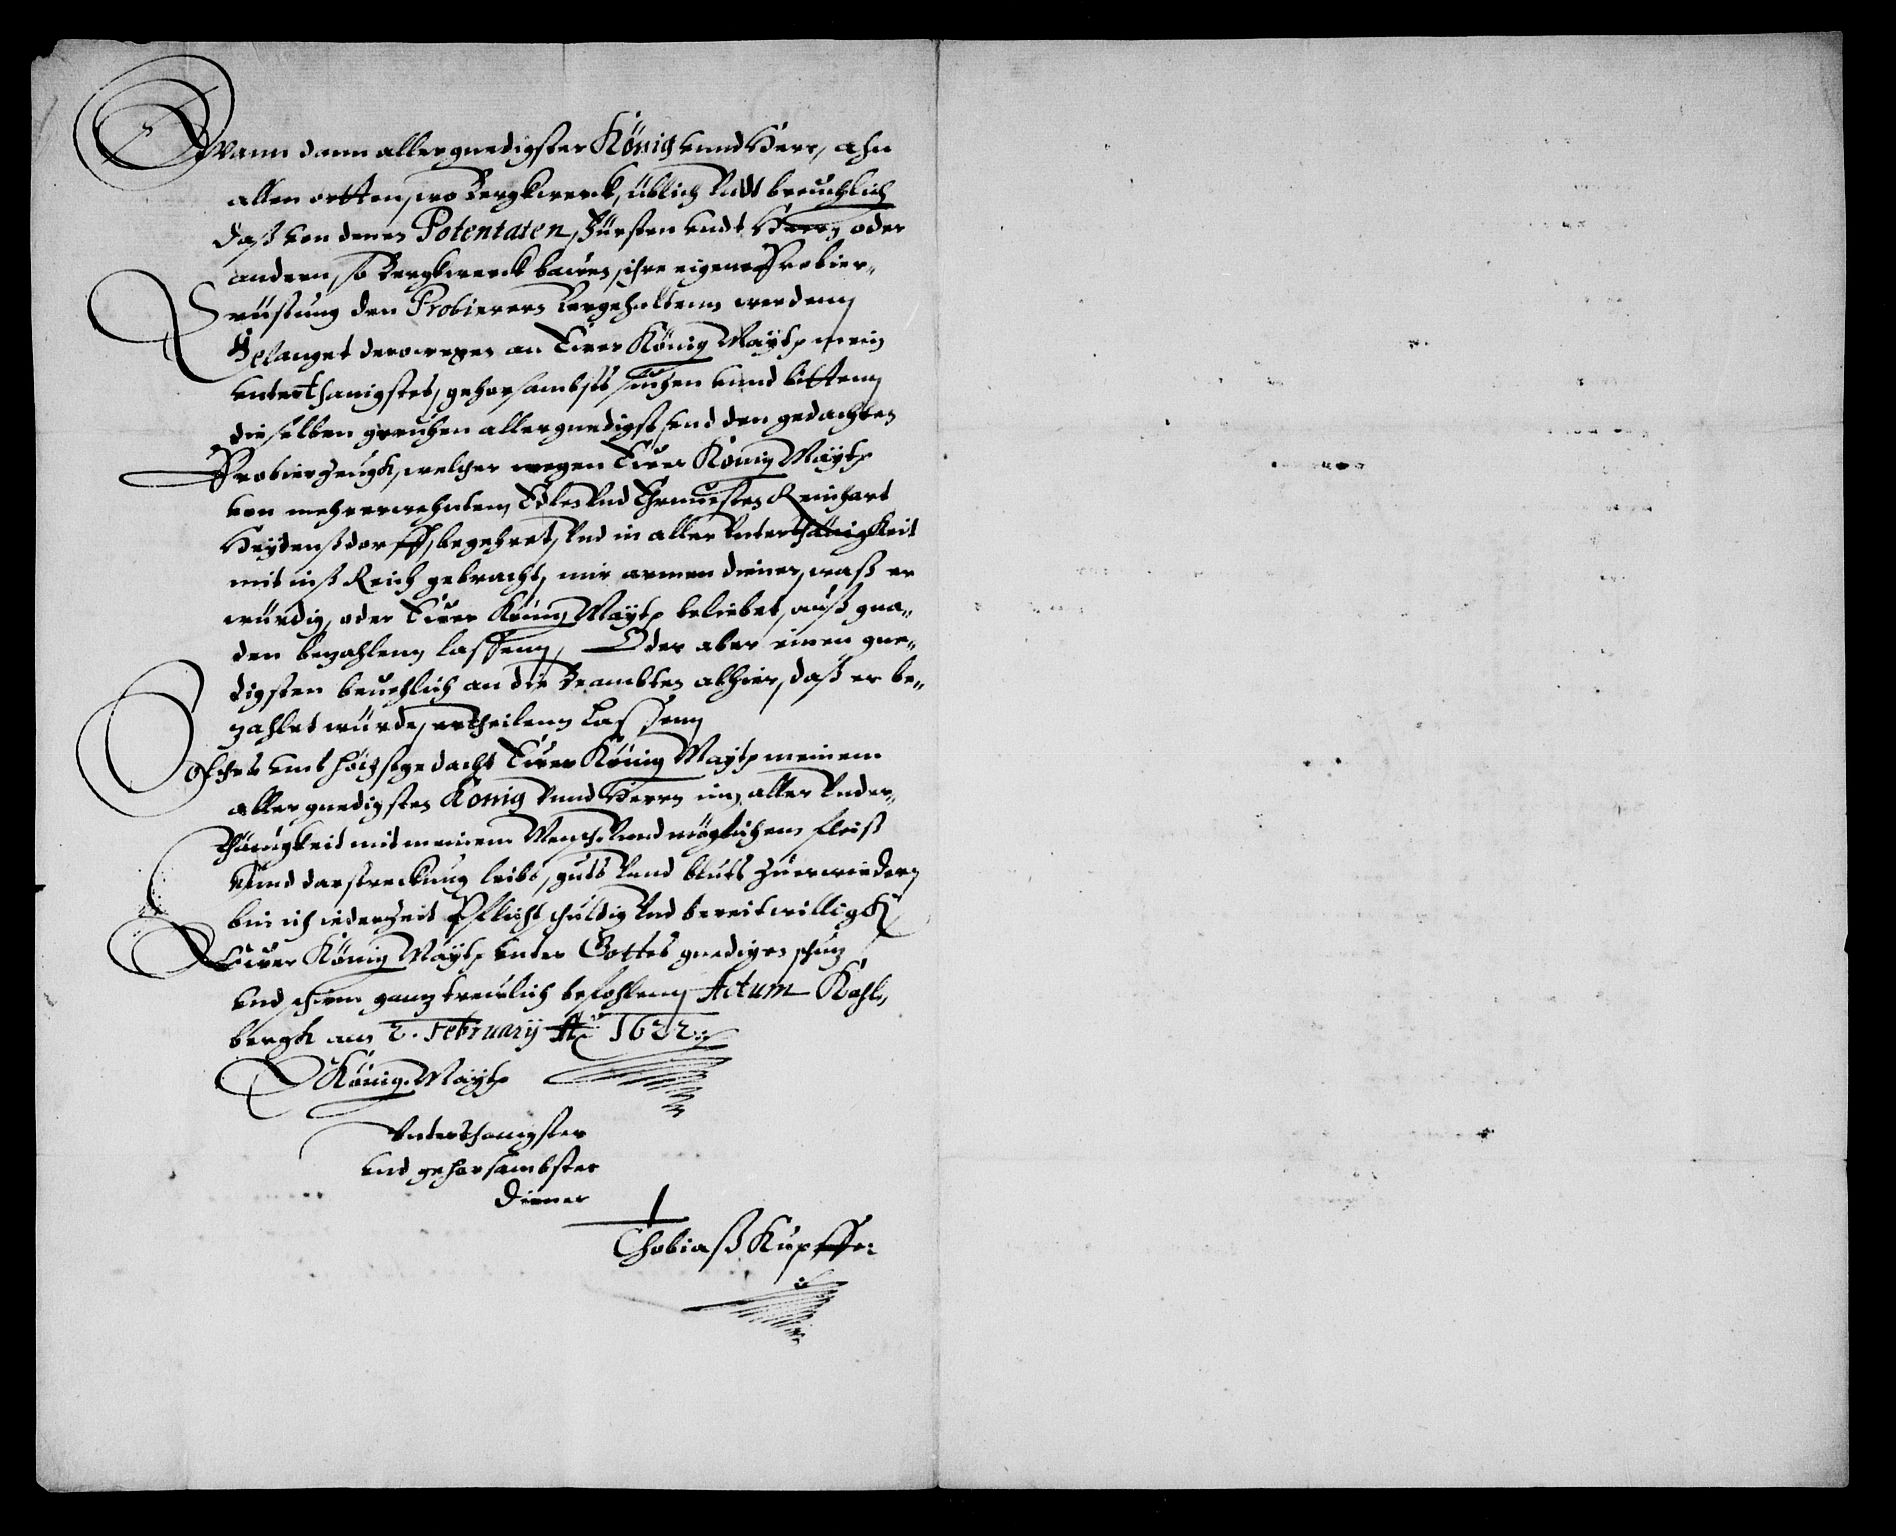 Wann dann allergnedigster König vnnd Herr, ahn
allen ortten, wo Bergkwerck, üblich Vndt breuchlich
daß von denen Potentaten, Fürsten vndt Herrn oder
andern, so Bergkwerck bawen, ihre eigene Probier-
rüstung den Probierern vorgehaltenn werdenn,
Gelanget derowegen an Ewer König Maytt mein
vnterthanigstes, gehorsambsts suchen vnnd bittenn
dieselben geruhen allergnedigst send den gedachten
Probierzeugk, welcher wegen Ewer König Maytt
von mehrerwehntem, Edlen Vnd Ehrnuesten Reinhart
Heydenßdorff, begehret, Vnd in aller Vnterthänigkeit
mit inß Reich gebracht, mir armen diener, waß er
würdig, oder Ewer König Maytt beliebet, auß gna-
den bezahlenn lassenn, Oder aber einen gne-
digsten beuehlich an die Beambten alhier, daß er be-
zahlet würde, ertheilenn Lassenn
Solches vmb höchstgedacht Ewer König Maytt meinem
allergnedigsten König Vnnd Herrn inn aller Vnder-
thänigkeit mit meinem Mensch. Vnnd möglichem fleiß
Vnnd darstreckung leibs, guts Vnnd bluts zuerwiedern
bin ich iederzeit Pflichtschuldig Vnd bereitwilligk
Ewer König Maytt vnter Gottes gnedigen schuz
vnd schirm ganz treulich befohlenn Actum Kohls-
bergk am 2. February Ao 1622.
E König. Maytt
Vnterthanigster
vnd gehorsambster
diener
Thobiaß Kupffer